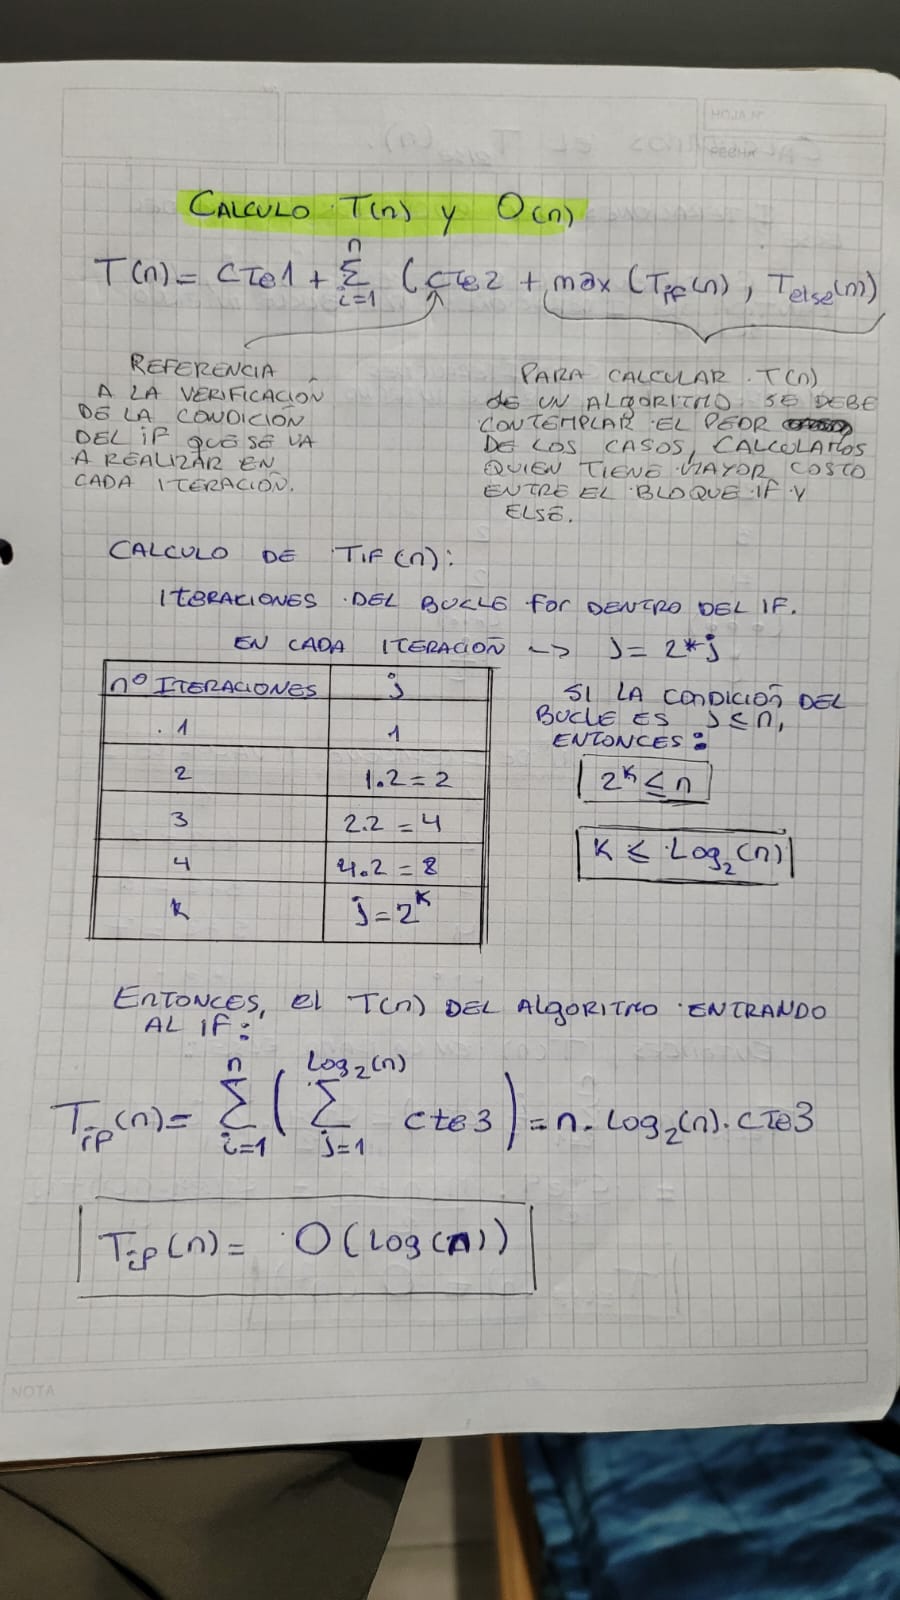 CALCULO T(n) y O(n)
T(n) = CTe1 + n Σ i=1 (CTe2 + max (Tif(n), Telse(n))
REFERENCIA
A LA VERIFICACIÓN
DE LA CONDICIÓN
DEL IF QUE SE VA
A REALIZAR EN
CADA ITERACIÓN.
PARA CALCULAR T(n)
de UN ALGORITMO SE DEBE
CONTEMPLAR EL PEOR
DE LOS CASOS, CALCULAMOS
QUIEN TIENE MAYOR COSTO
ENTRE EL BLOQUE IF Y
ELSE.
CALCULO DE TIF(n):
ITERACIONES DEL BUCLE for DENTRO DEL IF.
EN CADA ITERACIÓN -> j = 2*j
nº ITERACIONES j
1 1
2 1.2 = 2
3 2.2 = 4
4 4.2 = 8
k j = 2^K
SI LA CONDICIÓN DEL
BUCLE ES J ≤ n,
ENTONCES:
2^K ≤ n
K ≤ Log2(n)
ENTONCES, el T(n) DEL ALGORITMO ENTRANDO
AL IF:
Tif(n) = n Σ i=1 ( Log2(n) Σ j=1 cte3 ) = n. Log2(n). CTe3
Tif(n) = O(Log(n))
NOTA